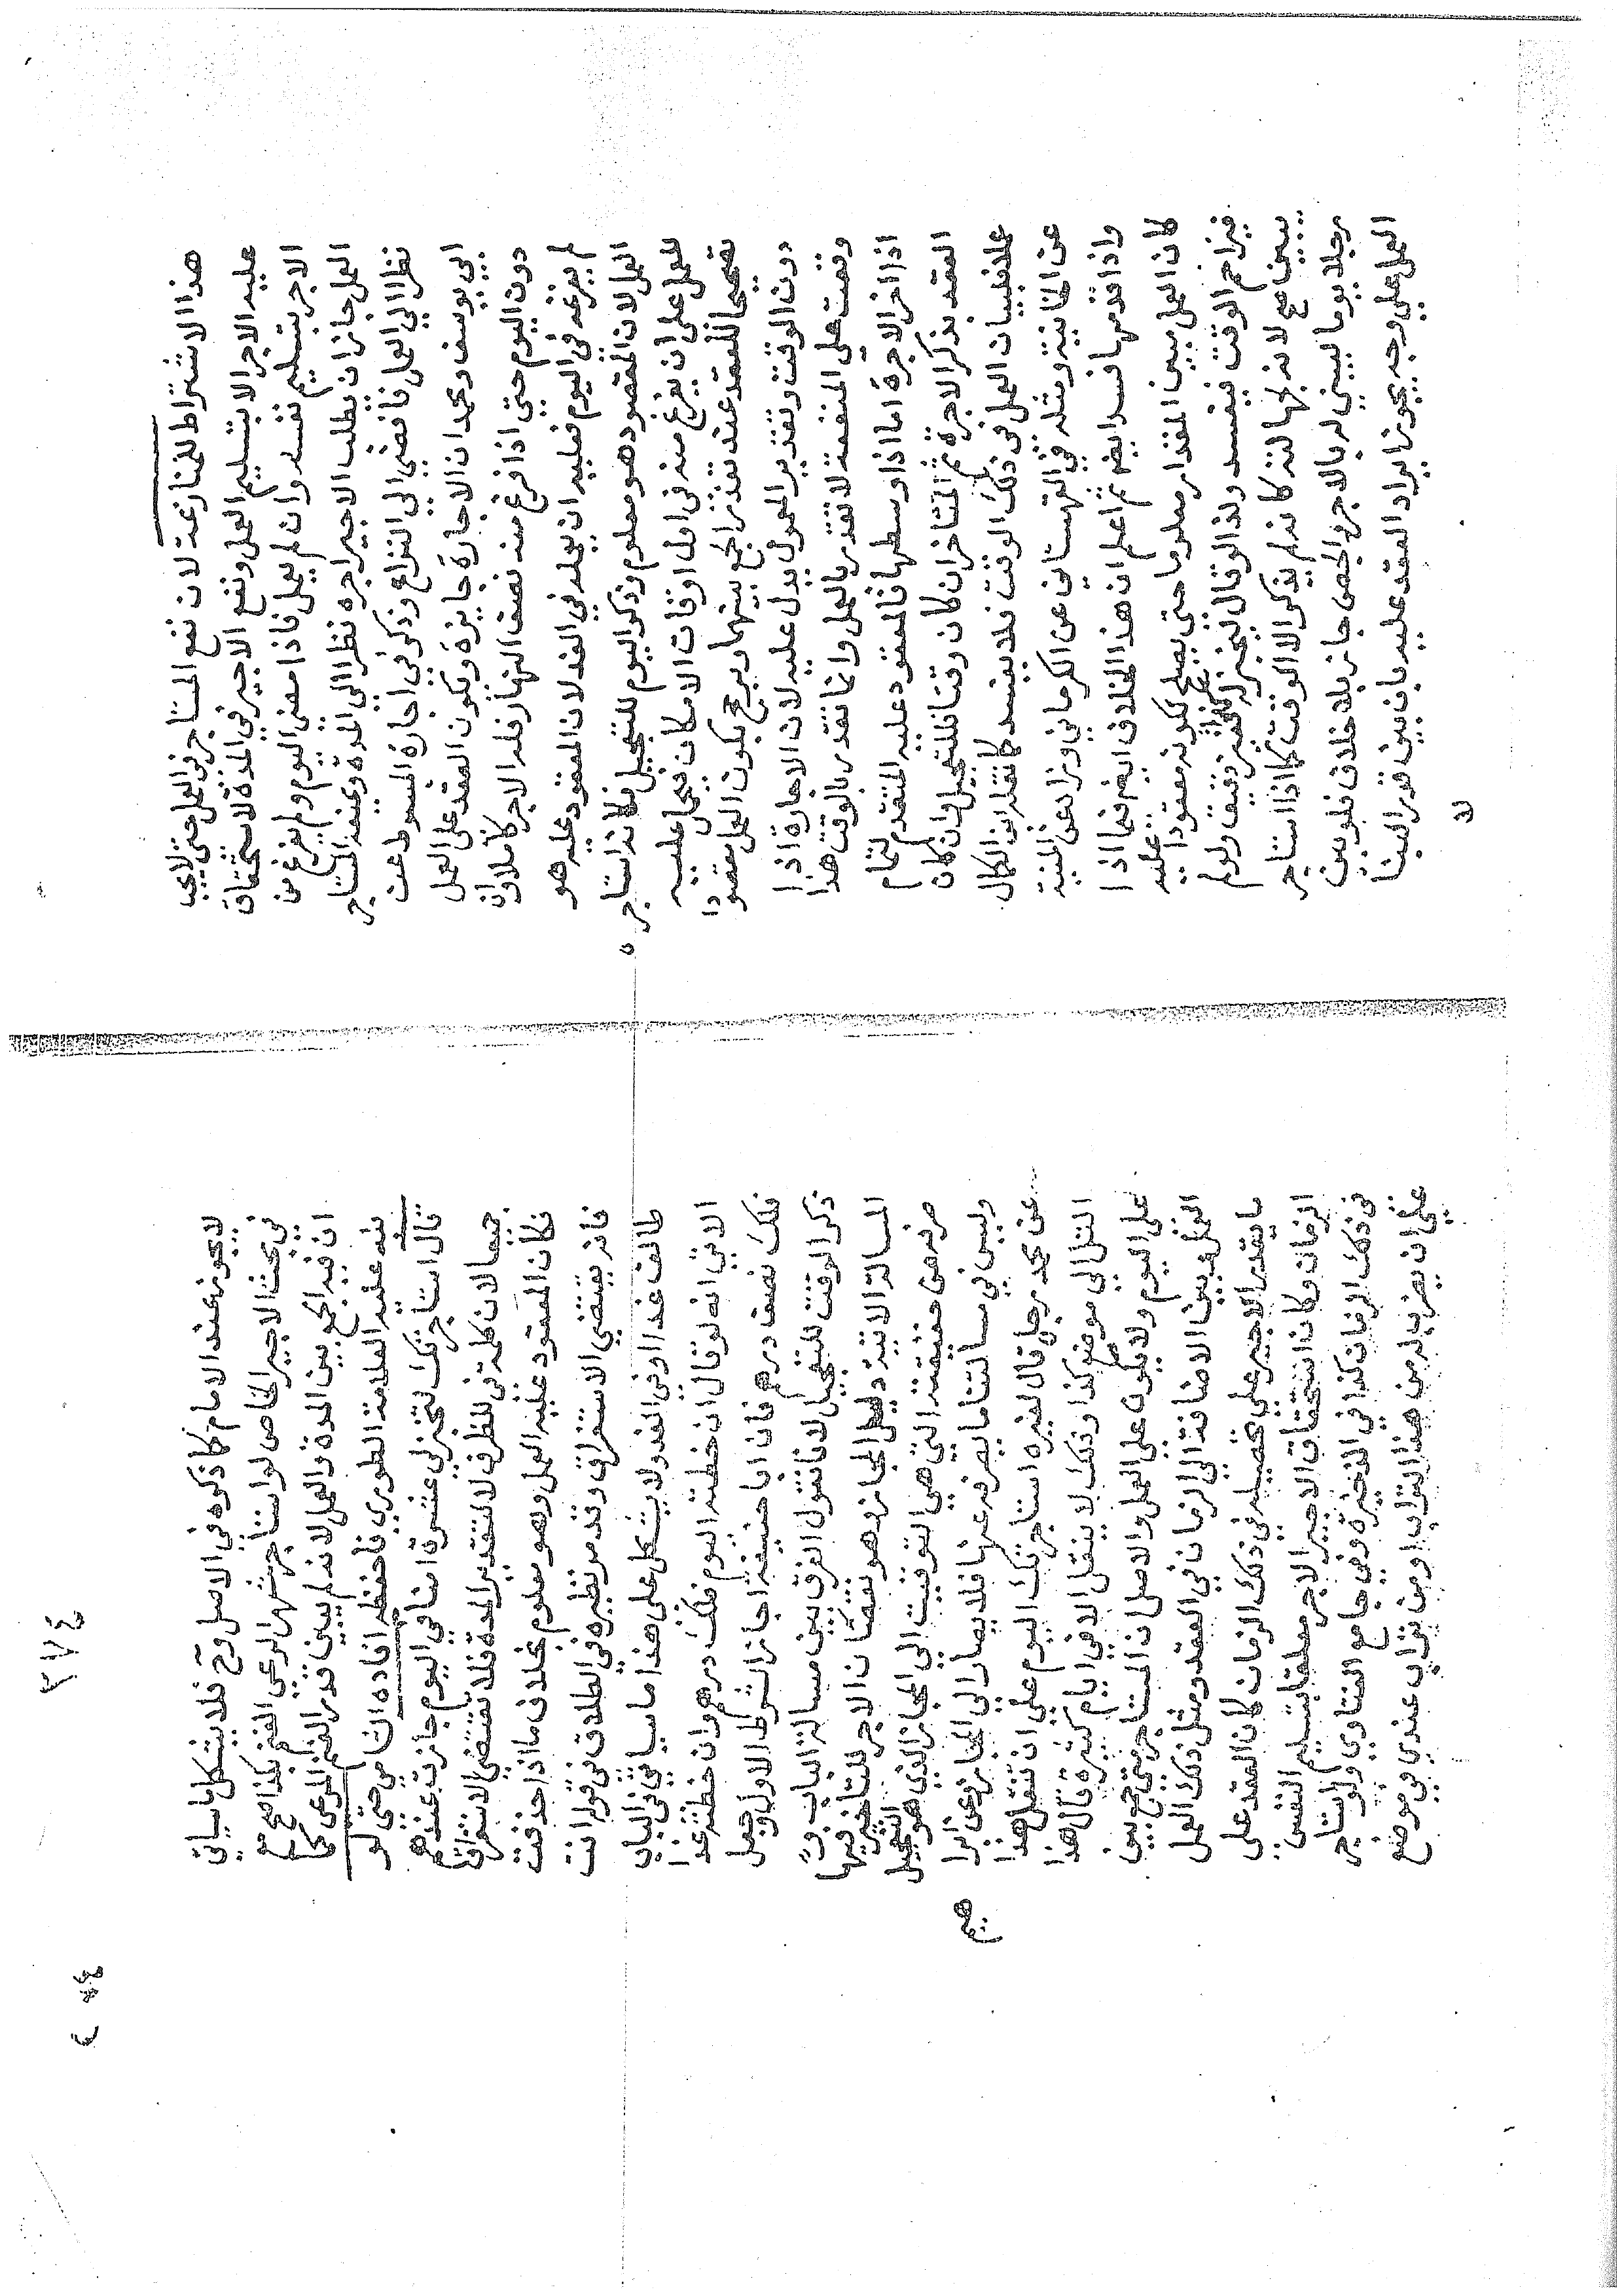 هذا الاشتراط للمنازعة لان نفع المستاجر في العمل حتى لا يجب
عليه الاجر الا بتسليم العمل ونفع الاجير في المدة لاستحقاق
الاجر بتسليم نفسه وان لم يعمل فاذا مضى اليوم ولم يفرغ من
العمل جاز ان يطلب الاجير اجره نظرا الي المدة ويمنعه المستاجر
نظرا الي العمل فافضي الي النزاع وذكر في اجارة المبسوط عن
ابي يوسف ومحمد ان الاجارة جايزة ويكون العقد على العمل
دون اليوم حتي اذا فرغ منه نصف النهار فله الاجر كاملا وان
لم يفرغه في اليوم فعليه ان يعمله في الغد لان المعقود عليه هو
العمل لان المقصود هو معلوم وذكر اليوم للتعجيل فكانه استاجره
للعمل على ان يفرغ منه في اول اوقات الامكان فيحمل عليه
تصحيحا للعقد عند تعذر الجمع بينهما ويرجح بكون العمل مقصودا
دون الوقت وتقدير المعمول يدل عليه لان الاجارة اذا
وقعت على المنفعة لا تقدر بالعمل وانما تقدر بالوقت هذا
اذا اخر الاجرة اما اذا وسطها فالمعقود عليه المتقدم لتمام
العقد بذكر الاجرة ثم المتاخر ان كان وقتا فللتعجيل وان كان
عملا فلبيان العمل في ذلك الوقت فلا يفسد كما نقله ابن الكمال
عن الخانية ومثله في القهستاني عن الكرماني وعزاه عن المنية
واذا قدمها فسد ايضا ثم اعلم ان هذا الخلاف ايضا فيما اذا
كان العمل مبين المقدار معلوما حتي يصلح لكونه معقودا عليه
فيزاحم الوقت فيفسد ولذا لو قال ليخبز له قفيز دقيق ولم
يبين صح لانه لجهالته كانه لم يذكر الا الوقت كما اذا استاجر
رجلا يوما ليبني له بالاجر والجص جاز بلا خلاف فلو بين
العمل على وجه يجوز ايراد العقد عليه بان بين قدر البنا
لا
٢٧٤
لا يجوز عند الامام كما ذكره في الاصل وح فلا يشكل ما سياتي
في بحث الاجير الخاص لو استاجر شهرا لرعي الغنم بكذا صح مع
ان فيه الجمع بين المدة والعمل لانه لم يبين قدر الغنم المرعي كما
نبه عليه العلامة الطوري فاحفظه افاده الشامي حتى لو
قال استاجرتك لتخبز لي عشرة امنا في اليوم جازت عندهم
جميعا لان كلمة في للظرف لا لتقدير المدة فلا تقتضي الاستغراق
فكان المعقود عليه العمل وهو معلوم بخلاف ما اذا حذفت
فانه يقتضي الاستغراق وقد مر نظيره في الطلاق في قوله انت
طالق غدا او في الغد ولا يشكل على هذا ما سياتي في الباب
الاتي انه لو قال ان خطته اليوم فلك درهم وان خطته غدا
فلك نصف درهم فان ابا حنيفة اجاز الشرط الاول وجعل
ذكر الوقت للتعجيل لانا نقول الفرق بين مسالة الباب وتلك
المسالة الاتية دليل المجاز وهو نقصان الاجر للتاخير فيها
صرفه عن حقيقته التي هي التوقيت الي المجاز الذي هو التعجيل
وليس في مسالتنا ما يصرفه عنها فلا يصار الي المجاز وعن ابراهيم
عن محمد رجل قال لغيره استاجرتك اليوم علي ان تنقل هذا
التل الي موضع كذا وذلك لا ينقل الا في ايام كثيرة قال هذا
على اليوم ولا يكون على العمل والاصل ان المستاجر متي جمع بين
العمل وبين الاضافة الي الزمان في العقد ومثل ذلك العمل
ما يقدر الاجير علي تحصيله في ذلك الزمان كان العقد على
الزمان وكان استحقاق الاجير الاجر معلقا بتسليم النفس
في ذلك الزمان كذا في الذخيرة وفي جامع الفتاوي ولو استاجر
علي ان يضرب له من هذا التراب او من تراب عندي في موضع
صح